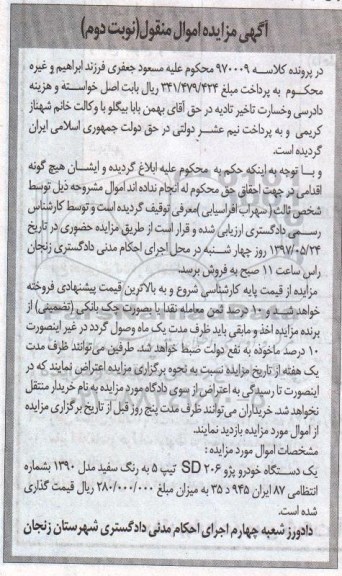 آگهی مزایده اموال منقول(نوبت دوم)
در پرونده کلاسه ۹۷۰۰۰۹ محکوم علیه مسعود جعفری فرزند ابراهیم و غیره
محکوم به پرداخت مبلغ ۳۴۱/۴۷۹/۴۲۴ ریال بابت اصل خواسته و هزینه
دادرسی وخسارت تاخیر تادیه در حق آقای بهمن بابا بیگلو با وکالت خانم شهناز
کریمی و به پرداخت نیم عشر دولتی در حق دولت جمهوری اسلامی ایران
گردیده است.
و با توجه به اینکه حکم به محکوم علیه ابلاغ گردیده و ایشان هیچ گونه
اقدامی در جهت احقاق حق محکوم له انجام نداده اند اموال مشروحه ذیل توسط
شخص ثالث (سهراب افراسیابی)معرفی توقیف گردیده است و توسط کارشناس
رسمی دادگستری ارزیابی شده و قرار است از طریق مزایده حضوری در تاریخ
۱۳۹۷/۰۵/۲۴ روز چهار شنبه در محل اجرای احکام مدنی دادگستری زنجان
راس ساعت ۱۱ صبح به فروش برسد.
مزایده از قیمت پایه کارشناسی شروع و به بالاترین قیمت پیشنهادی فروخته
خواهد شد و ۱۰ درصد ثمن معامله نقدا یا بصورت چک بانکی (تضمینی) از
برنده مزایده اخذ و مابقی باید ظرف مدت یک ماه وصول گردد در غیر اینصورت
۱۰ درصد ماخوذه به نفع دولت ضبط خواهد شد. طرفین می‌توانند ظرف مدت
یک هفته از تاریخ مزایده نسبت به نحوه برگزاری مزایده اعتراض نمایند که در
اینصورت تا رسیدگی به اعتراض از سوی دادگاه مورد مزایده به نام خریدار منتقل
نخواهد شد. خریداران می‌توانند ظرف مدت پنج روز قبل از تاریخ برگزاری مزایده
از اموال مورد مزایده بازدید نمایند.
مشخصات اموال مورد مزایده :
یک دستگاه خودرو پژو ۲۰۶ SD تیپ ۵ به رنگ سفید مدل ۱۳۹۰ بشماره
انتظامی ۸۷ ایران ۹۴۵ د ۳۵ به میزان مبلغ ۲۸۰/۰۰۰/۰۰۰ ریال قیمت گذاری
شده است.
دادورز شعبه چهارم اجرای احکام مدنی دادگستری شهرستان زنجان